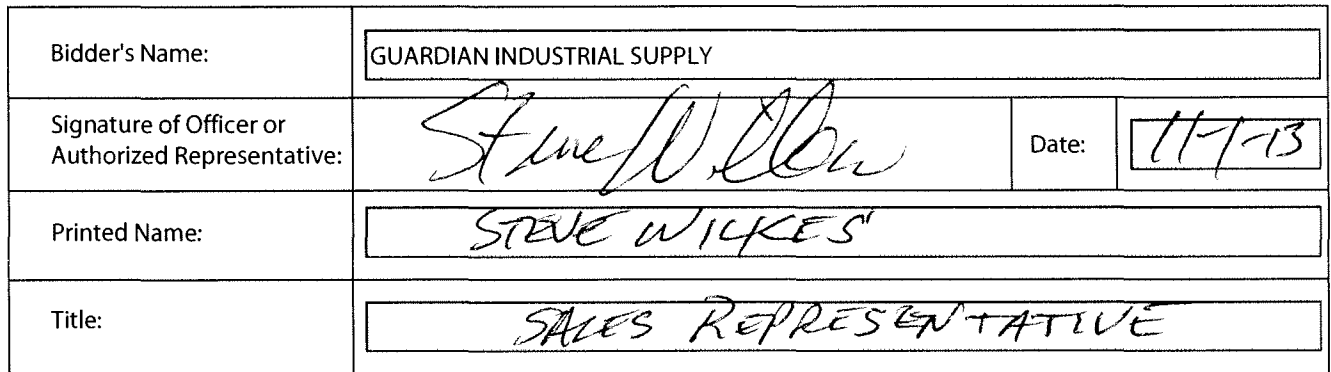 Bidder's Name:
GUARDIAN INDUSTRIAL SUPPLY
Signature of Officer or
Authorized Representative:
Steve Wilkes
Date:
11-1-13
Printed Name:
STEVE WILKES
Title:
SALES REPRESENTATIVE